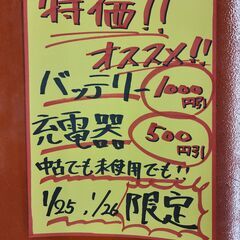 特価!!
オススメ!!
バッテリー 1000円引
充電器 500円引
中古でも未使用でも!!
1/25, 1/26 限定